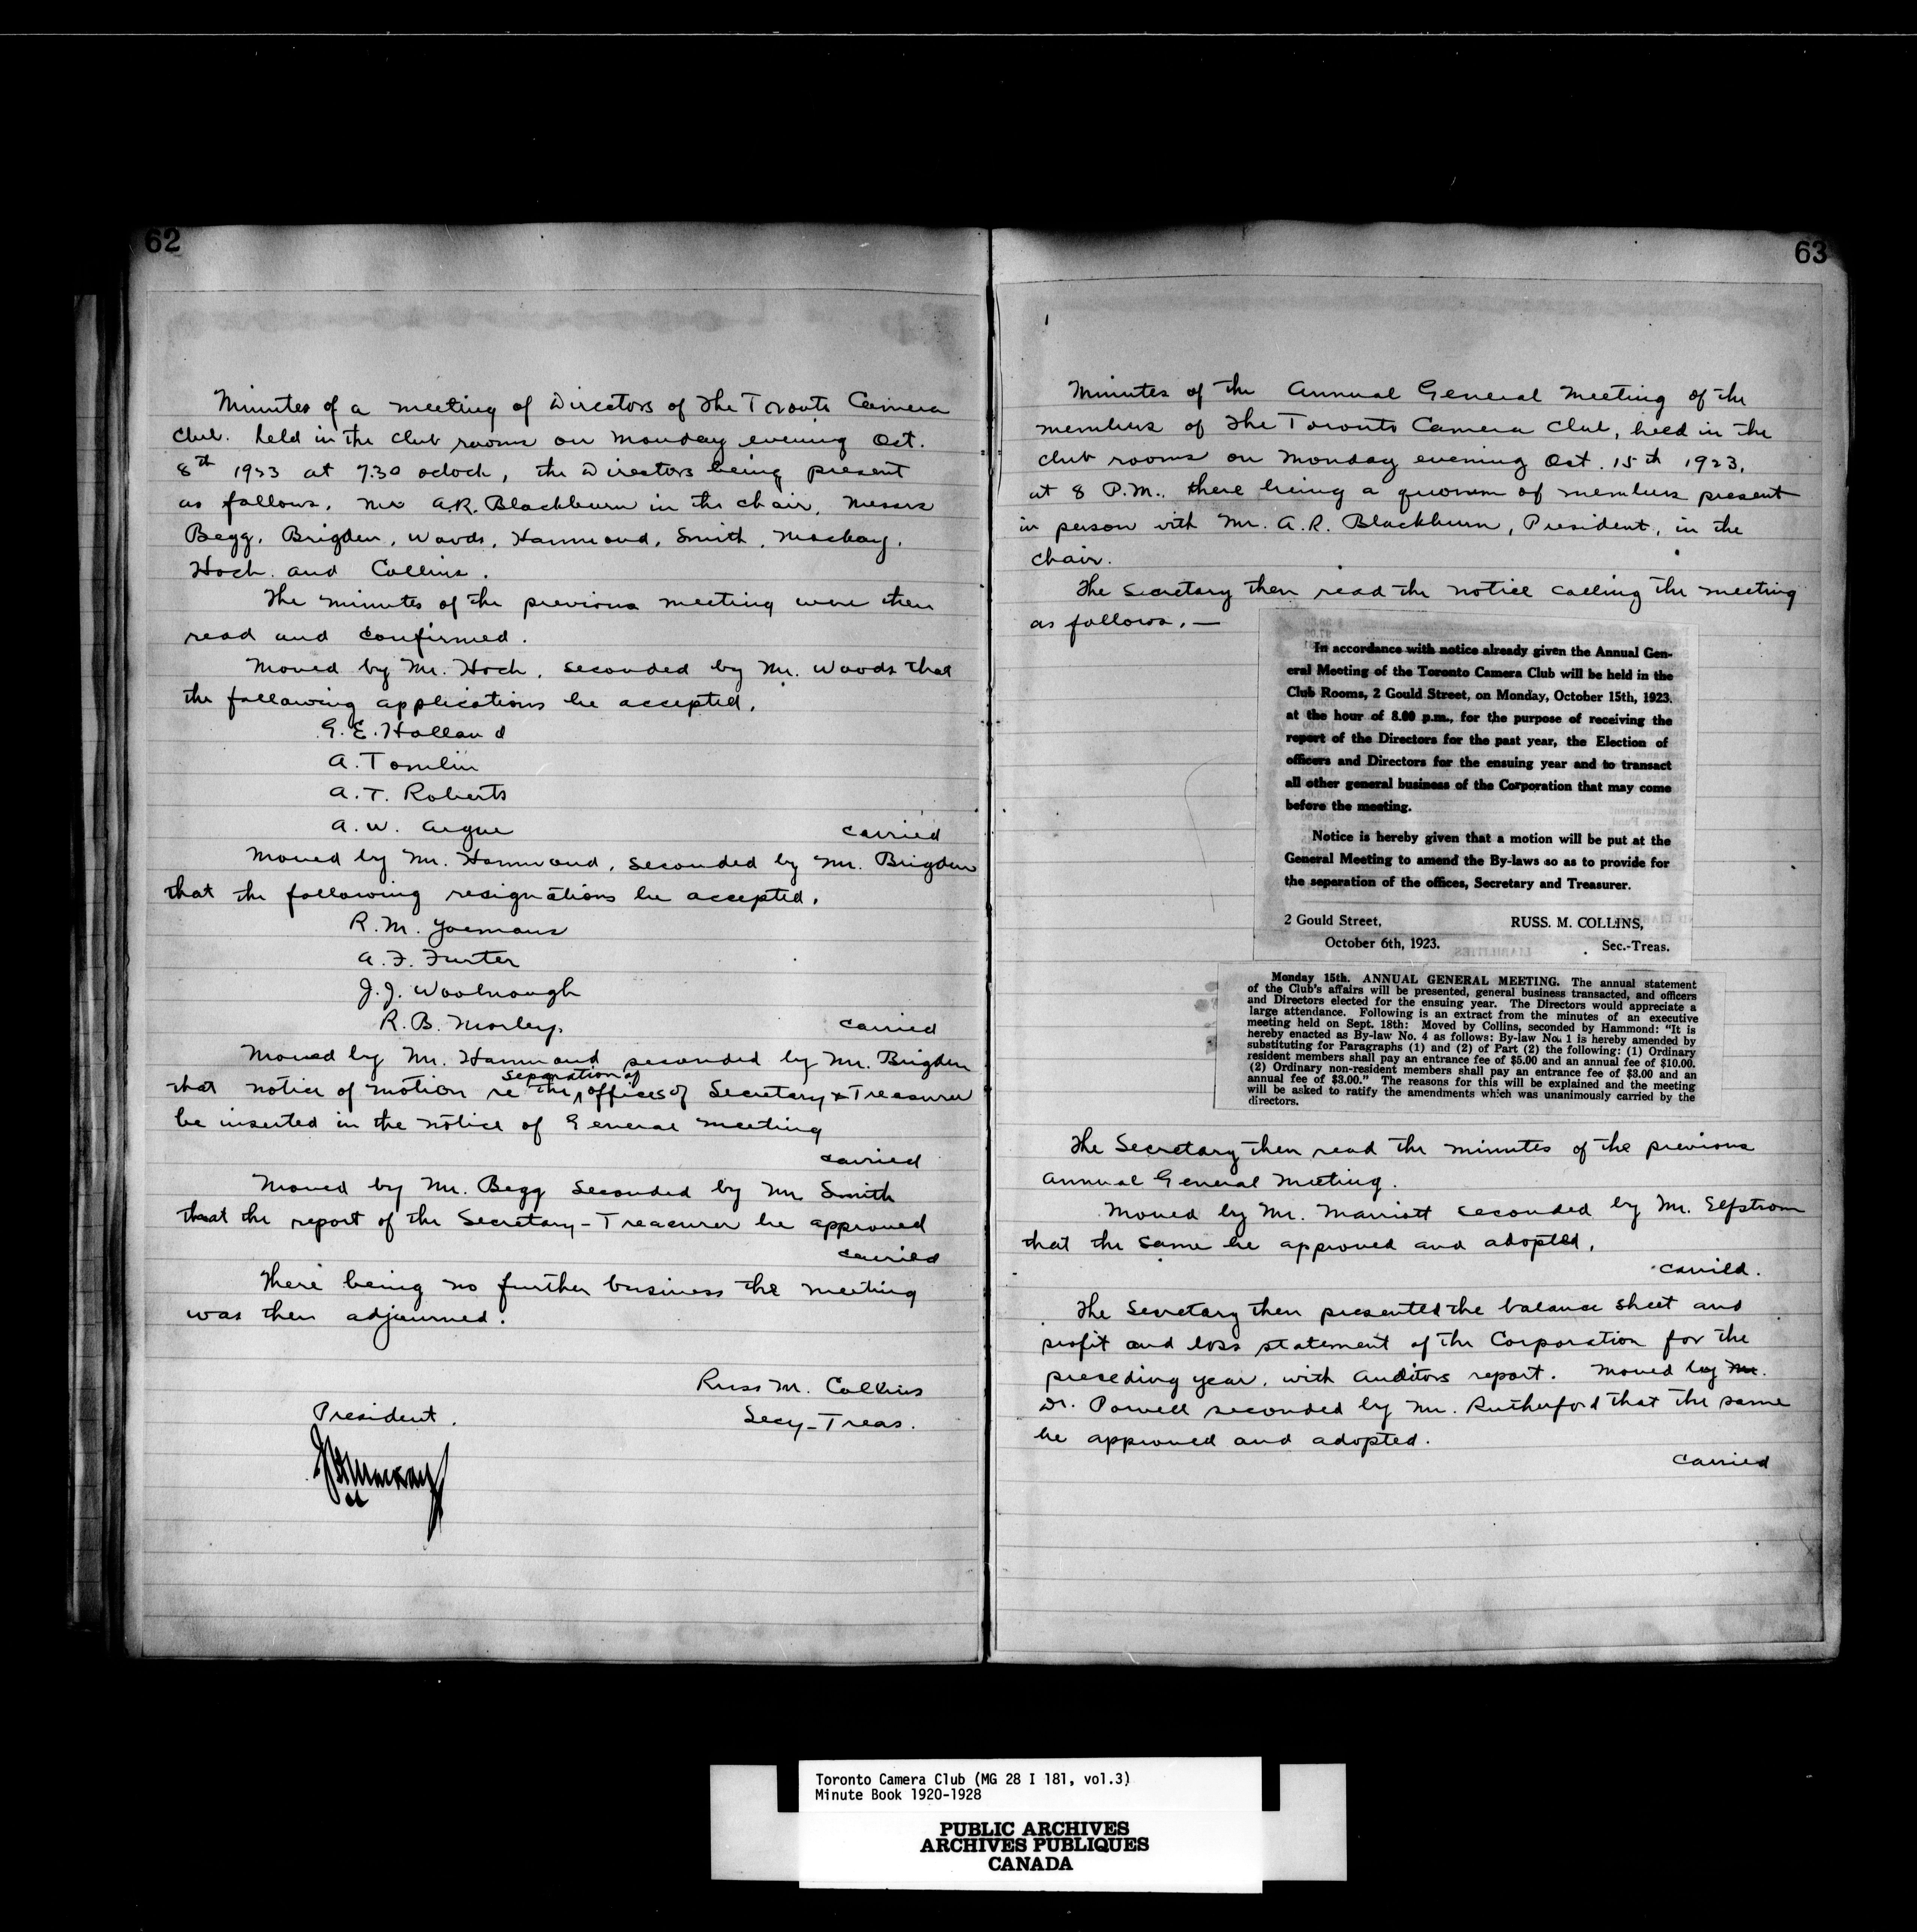 62
Minutes of a meeting of Directors of The Toronto Camera
Club. held in the club rooms on Monday evening Oct.
8th 1923 at 7.30 oclock, the Directors being present
as follows. Mr A.R. Blackburn in the chair, Messrs
Begg, Brigden, Woods, Hammond, Smith, Mackay,
Hoch. and Collins.
The minutes of the previous meeting were then
read and confirmed.
Moved by Mr. Hoch, seconded by Mr. Woods that
the following applications be accepted,
G.E. Holland
A. Tomlin
A. T. Roberts
A. W. Argue
carried
Moved by Mr. Hammond, seconded by Mr. Brigden
that the following resignations be accepted.
R. M. Yoemans
A. F. Furter
J. J. Woolnough
R. B. Morley.
carried
Moved by Mr. Hammond seconded by Mr. Brigden
separation of
that notice of motion re the offices of Secretary & Treasurer
be inserted in the notice of General Meeting
carried
Moved by Mr. Begg seconded by Mr Smith
that the report of the Secretary-Treasurer be approved
carried
There being no further business the meeting
was then adjourned.
Russ M. Collins
President.
Secy-Treas.
63
Minutes of the Annual General Meeting of the
members of The Toronto Camera Club, held in the
club rooms on Monday evening Oct. 15th 1923,
at 8 P.M., there being a quorum of members present
in person with Mr. A. R. Blackburn, President, in the
chair.
The Secretary then read the notice calling the meeting
as follows. —
In accordance with notice already given the Annual Gen-
eral Meeting of the Toronto Camera Club will be held in the
Club Rooms, 2 Gould Street, on Monday, October 15th, 1923.
at the hour of 8.00 p.m., for the purpose of receiving the
report of the Directors for the past year, the Election of
officers and Directors for the ensuing year and to transact
all other general business of the Corporation that may come
before the meeting.
Notice is hereby given that a motion will be put at the
General Meeting to amend the By-laws so as to provide for
the separation of the offices, Secretary and Treasurer.
2 Gould Street, RUSS. M. COLLINS,
October 6th, 1923. Sec.-Treas.
Monday 15th. ANNUAL GENERAL MEETING. The annual statement
of the Club's affairs will be presented, general business transacted, and officers
and Directors elected for the ensuing year. The Directors would appreciate a
large attendance. Following is an extract from the minutes of an executive
meeting held on Sept. 18th: Moved by Collins, seconded by Hammond: "It is
hereby enacted as By-law No. 4 as follows: By-law No. 1 is hereby amended by
substituting for Paragraphs (1) and (2) of Part (2) the following: (1) Ordinary
resident members shall pay an entrance fee of $5.00 and an annual fee of $10.00.
(2) Ordinary non-resident members shall pay an entrance fee of $3.00 and an
annual fee of $3.00." The reasons for this will be explained and the meeting
will be asked to ratify the amendments which was unanimously carried by the
directors.
The Secretary then read the minutes of the previous
Annual General Meeting.
Moved by Mr. Marriott seconded by Mr. Elfstrom
that the same be approved and adopted,
carried.
The Secretary then presented the balance sheet and
profit and loss statement of the Corporation for the
preceding year, with Auditors report. Moved by Mr.
Dr. Powell seconded by Mr. Rutherford that the same
be approved and adopted.
carried
Toronto Camera Club (MG 28 I 181, vol.3)
Minute Book 1920-1928
PUBLIC ARCHIVES
ARCHIVES PUBLIQUES
CANADA